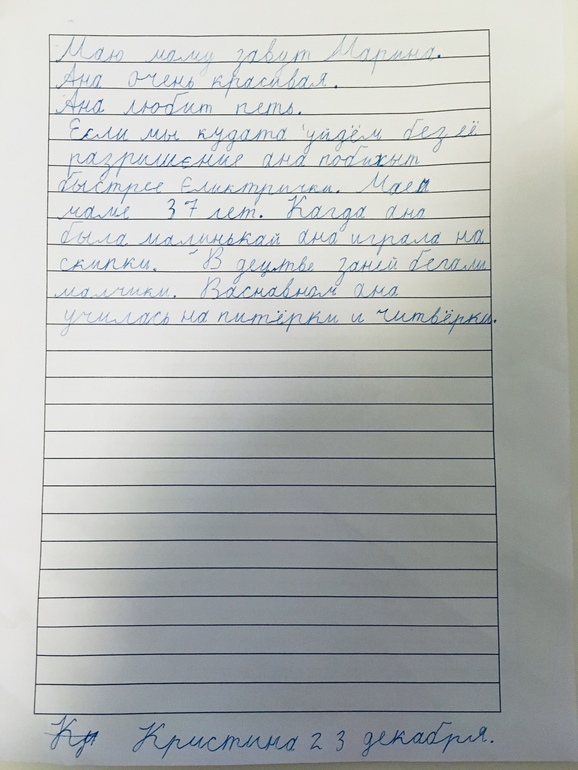 Маю маму завут Марина.
Ана очень красивая.
Ана любит петь.
Если мы кудата уйдём без её
разришение ана побижыт
быстрее Електрички. Маей
маме 37 лет. Кагда ана
была малинькай ана играла на
скипки. В децтве заней бегали
малчики. Васнавном ана
училась на питёрки и читвёрки.
Кр Кристина 23 декабря.